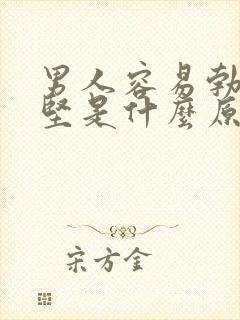 男人容易勃
坚是什麼原
宋方金